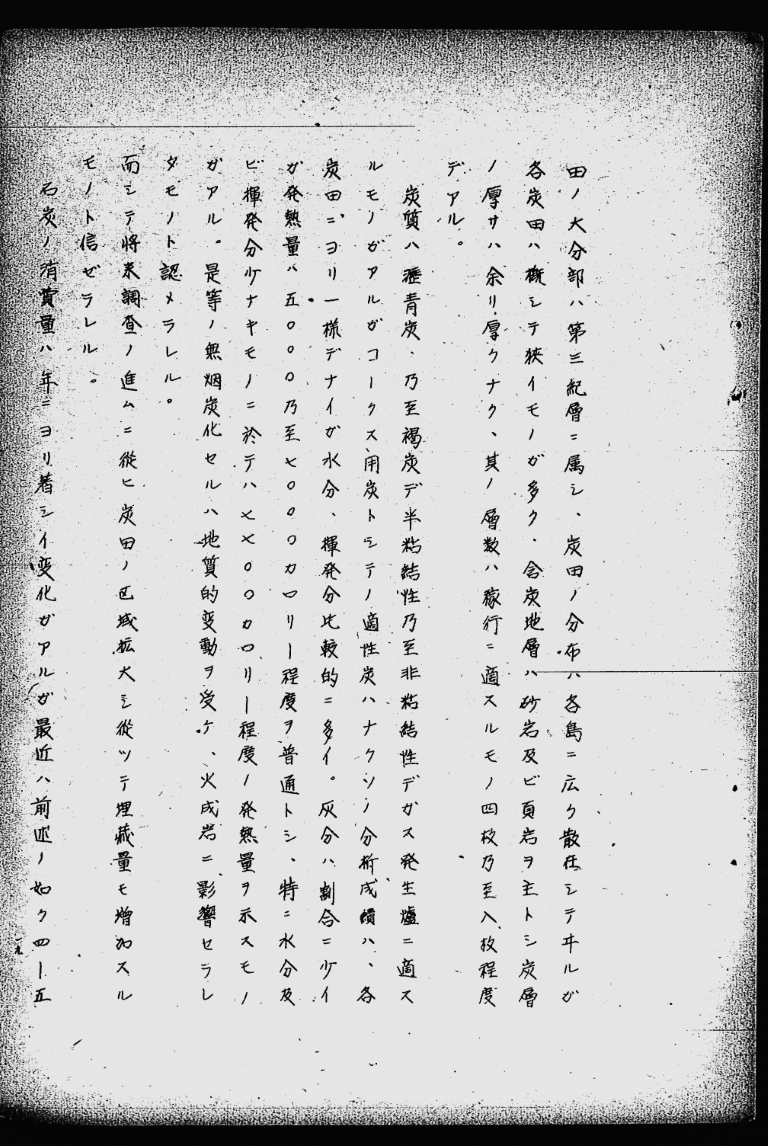 田ノ大分部ハ第三紀層ニ属シ、炭田ノ分布ハ各島ニ広ク散在シテヰルガ
各炭田ハ概シテ狭イモノガ多ク、含炭地層ハ砂岩及ビ頁岩ヲ主トシ炭層
ノ厚サハ余リ厚クナク、其ノ層数ハ稼行ニ適スルモノ四枚乃至八枚程度
デアル。
炭質ハ瀝青炭、乃至褐炭デ半粘結性乃至非粘結性デガス発生爐ニ適ス
ルモノガアルガコークス用炭トシテノ適性炭ハナクソノ分析成績ハ、各
炭田ニヨリ一様デナイガ水分、揮発分比較的ニ多イ。灰分ハ割合ニ少イ
ガ発熱量ハ五〇〇〇乃至七〇〇〇カロリー程度ヲ普通トシ、特ニ水分及
ビ揮発分少ナキモノニ於テハ七七〇〇カロリー程度ノ発熱量ヲ示スモノ
ガアル。是等ノ無烟炭化セルハ地質的変動ヲ受ケ、火成岩ニ影響セラレ
タモノト認メラレル。
而シテ将来調査ノ進ムニ從ヒ炭田ノ区域拡大シ從ツテ埋蔵量モ増加スル
モノト信ゼラレル。
石炭ノ消費量ハ年ニヨリ着シイ変化ガアルガ最近ハ前述ノ如ク四ー五